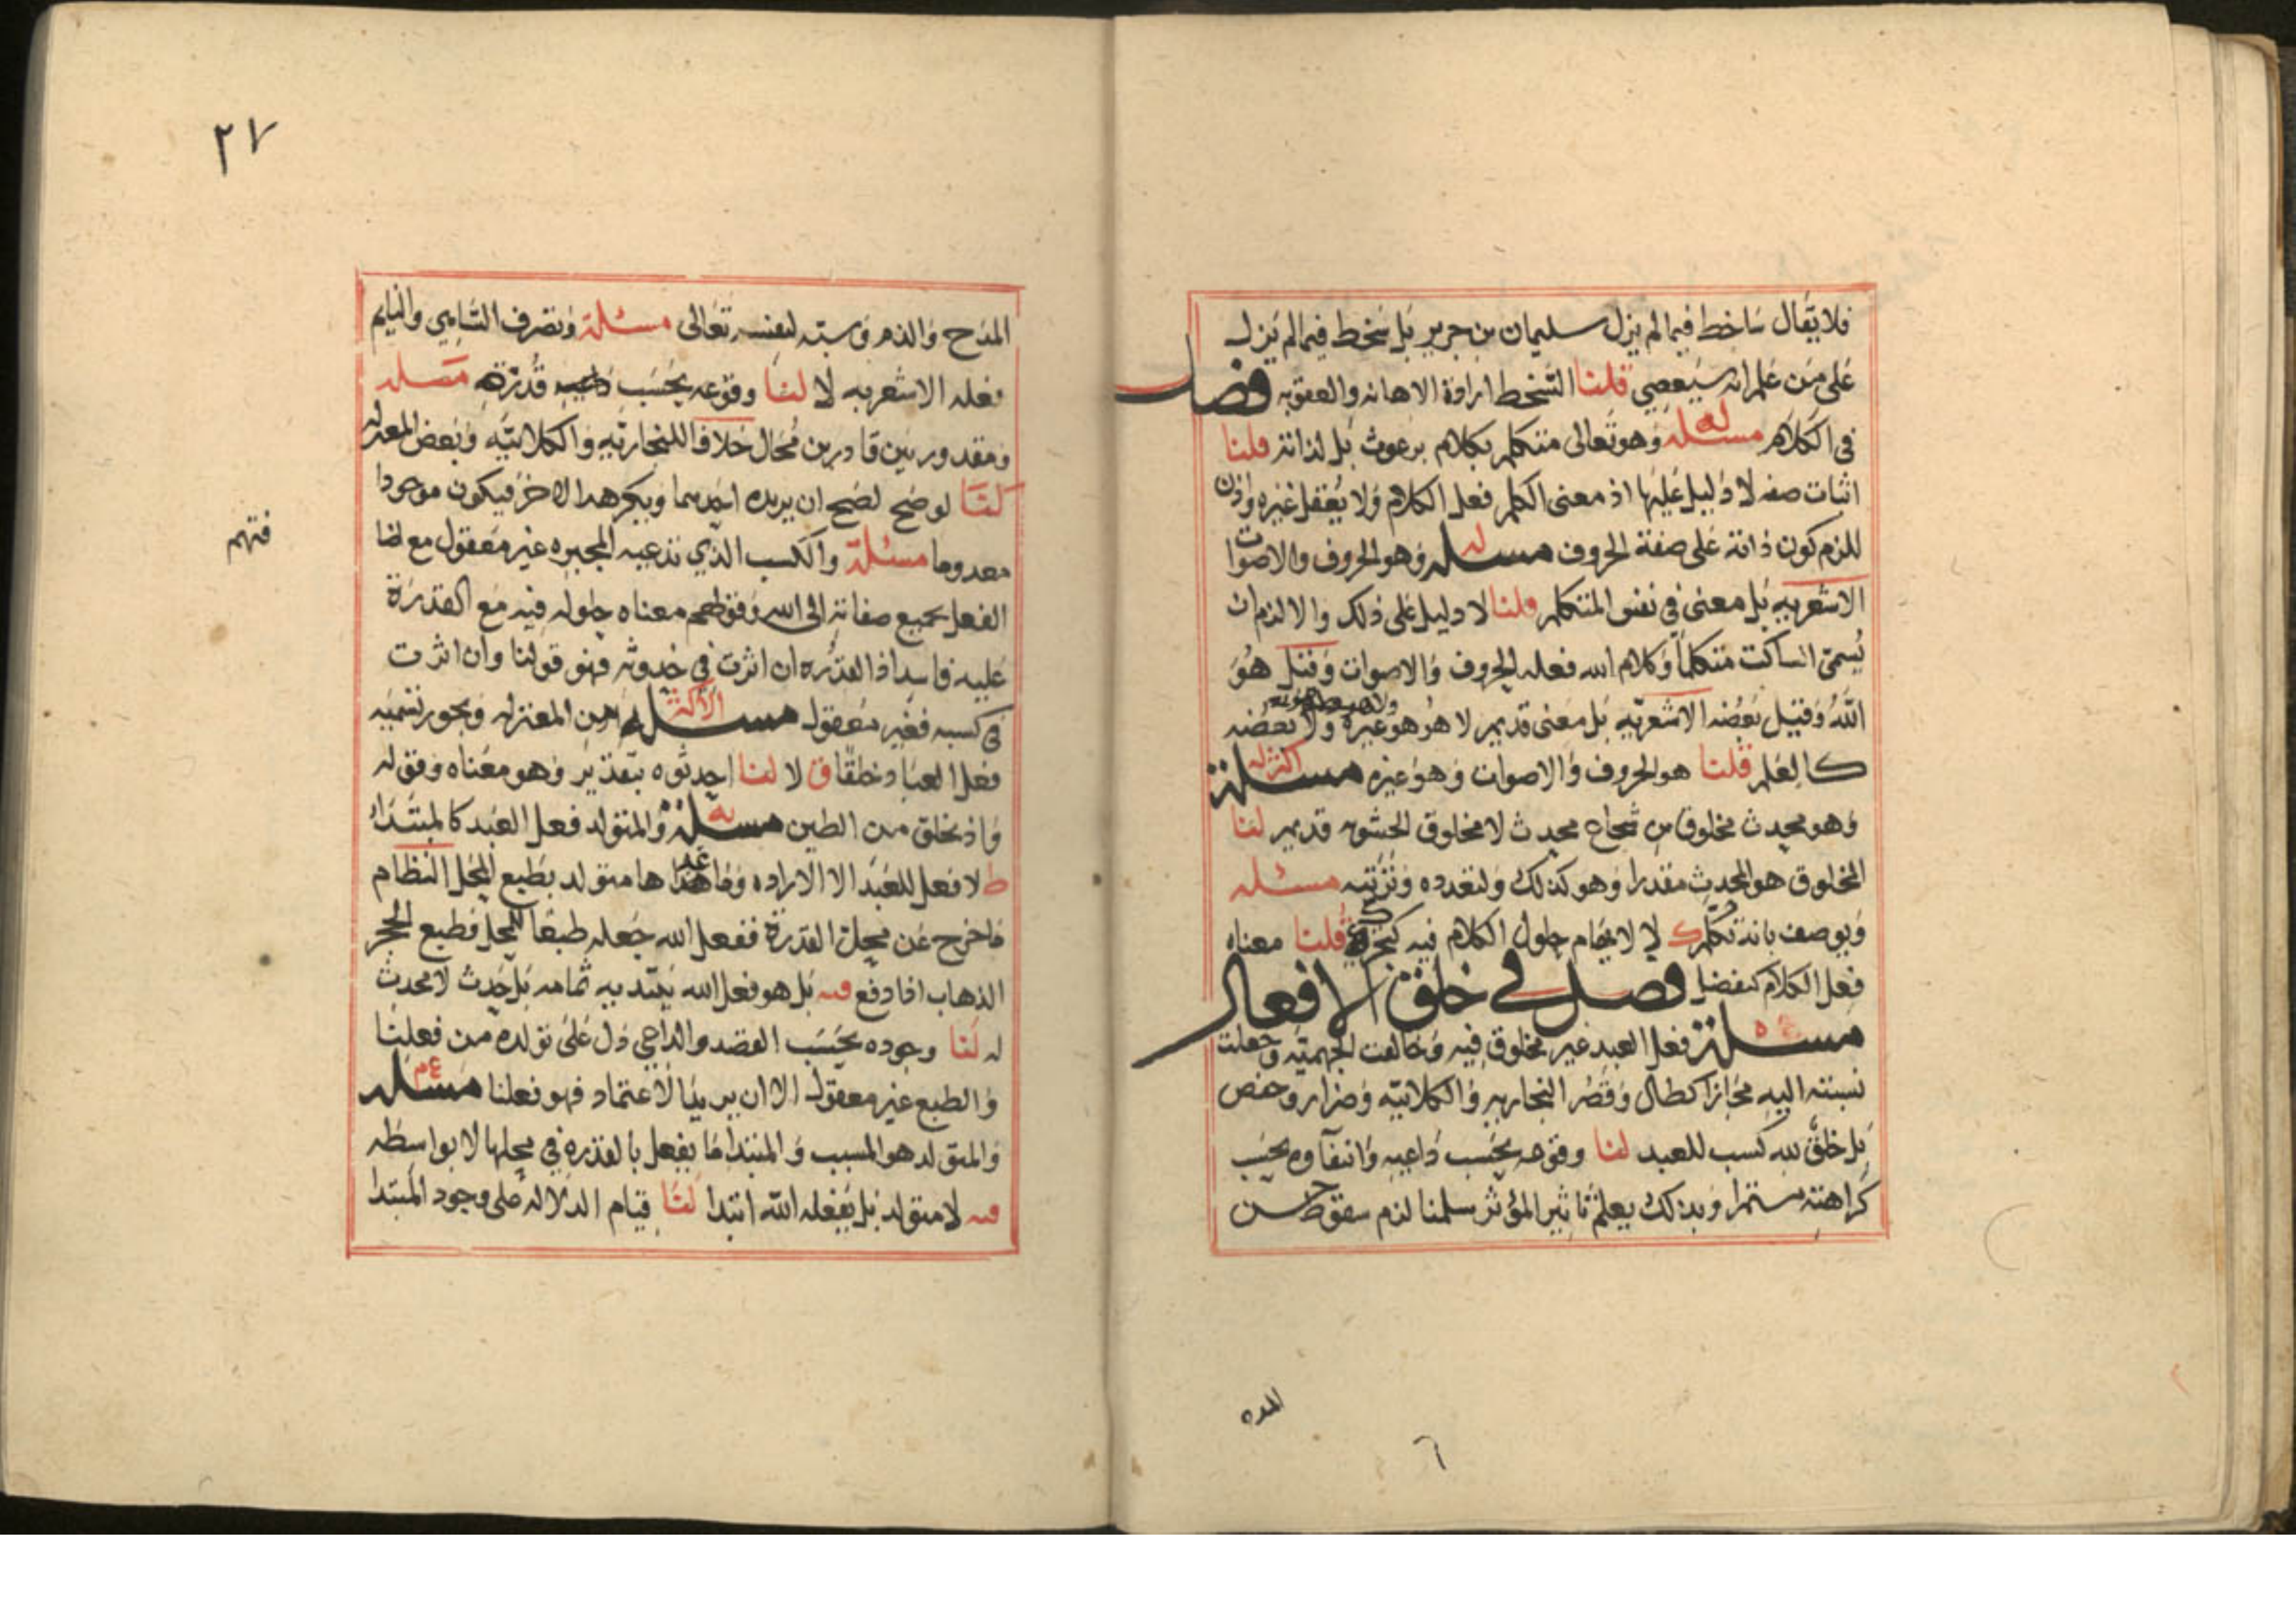 فلا يقال ساخط فيما لم يزل سليمان بن جرير بل سخط فيما لم يزل
على من علم انه سيعصي قلنا السخط ارادة الاهانه والعقوبه فصل
في الكلام مسئله وهو تعالى متكلم بكلام برغوث بل لذاته قلنا
اثبات صفه لا دليل عليها اذ معنى الكلم فعل الكلام ولا يعقل غيره واذن
للزم كون ذاته على صفة الحروف مسئله وهو الحروف والاصوات
الاشعريه بل معنى في نفس المتكلم قلنا لا دليل على ذلك والا لزم ان
يسمى الساكت متكلما وكلام الله فعله الحروف والاصوات وقيل هو
الله وقيل بعضه الاشعريه بل معنى قديم لا هو هو غيره ولا بعضه
كالعلم قلنا هو الحروف والاصوات وهو غيره مسئلة
وهو محدث مخلوق محدث لا مخلوق الحشويه قديم لنا
المخلوق هو المحدث مقدرا وهو كذلك ولتعدده وترتيبه مسئله
ويوصف بانه تكلم لا لايهام حلول الكلام فيه قلنا معناه
فعل الكلام كتفضل فصل في خلق الافعال
مسئلة فعل العبد غير مخلوق فيه وخالفت الجهميه وجعلت
نسبته اليه مجازا كطال وقصر النجاريه والكلابيه وضرار وحفص
بل خلق لله كسب للعبد لنا وقوعه بحسب داعيه وانتفاوه بحسب
كراهته مستمرا وبذلك يعلم تاثير المؤثر سلمنا لزم سقوط حسن
المدح
٢٧
المدح والذم وسبه لنفسه تعالى مسئلة وتصرف الساهي والنايم
فعله الاشعريه لا لنا وقوعه بحسب قدرته مسئله
ومقدور بين قادرين محال خلافا للنجاريه والكلابيه وبعض المعتزله
لنا لو صح لصح ان يريده احدهما ويكرهه الاخر فيكون موجودا
معدوما مسئلة والكسب الذي تدعيه المجبره غير معقول مع اضافة
الفعل بجميع صفاته الى الله وقولهم معناه حلوله فيه مع القدرة
عليه فاسد اذ القدره ان اثرت في حدوثه فهو قولنا وان اثرت
في كسبه فغير معقول مسئله الاكثر من المعتزله ويجوز تسميه
فعل العباد خلقا ق لا لنا احدثوه بتقدير وهو معناه وقوله
واذ تخلق من الطين مسئلة والمتولد فعل العبد كالمبتدا
ط لا فعل للعبد الا الاراده وما عداها متولد بطبع المحل النظام
ما خرج عن محل القدرة ففعل الله جعله طبعا للمحل فطبع الحجر
الذهاب اذا دفع بل هو فعل الله يبتديه ثمامه بل حدث لا محدث
له لنا وجوده بحسب القصد والداعي دل على تولده من فعلنا
والطبع غير معقول الا ان يريدنا الاعتماد فهو فعلنا مسئله
والمتولد هو المسبب والمبتدا ما يفعل بالقدره في محلها لا بواسطه
لا متولد بل يفعله الله ابتدا لنا قيام الدلاله على وجود المبتدا